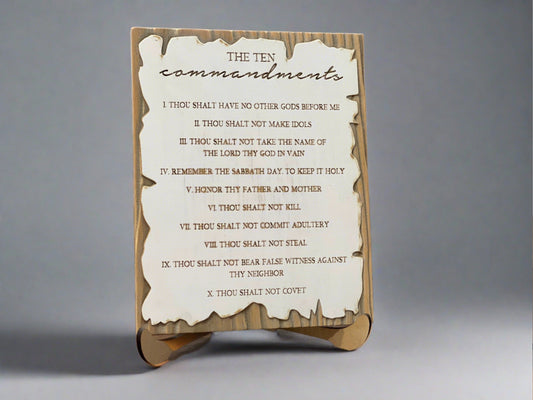 THE TEN
commandments
I. THOU SHALT HAVE NO OTHER GODS BEFORE ME
II. THOU SHALT NOT MAKE IDOLS
III. THOU SHALT NOT TAKE THE NAME OF
THE LORD THY GOD IN VAIN
IV. REMEMBER THE SABBATH DAY, TO KEEP IT HOLY
V. HONOR THY FATHER AND MOTHER
VI. THOU SHALT NOT KILL
VII. THOU SHALT NOT COMMIT ADULTERY
VIII. THOU SHALT NOT STEAL
IX. THOU SHALT NOT BEAR FALSE WITNESS AGAINST
THY NEIGHBOR
X. THOU SHALT NOT COVET